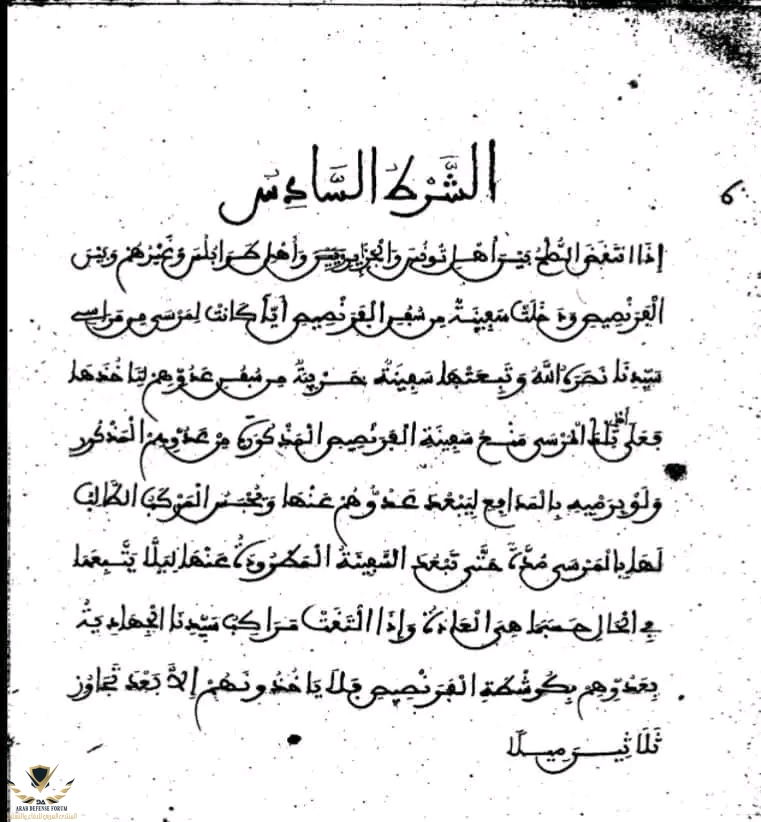 الشَّرْطُ السَّادِسُ
6
إذَا انتَقَضَ الصُّلْحُ بَيْنَ أهْلِ تُونُسَ وَالجزَايِر وَأهْلِ طرَابُلسَ وَغَيْرِهُمْ وبَيْن
الْفِرَنْصِيصِ وَدَخَلَتْ سَفِينَةٌ مِن سُفُنِ الْفِرَنْصِيصِ أيّاً كَانَتْ لِمَرْسَى مِن مَرَاسِي
سَيِّدِنَا نَصَرَهُ اللَّهُ وَتَبِعَتْهَا سَفِينَةٌ حَرْبِيَةٌ مِن سُفُنِ عَدُوِّهِمْ لِتَاخُذَهَا
فَعَلَى أهْلِ تِلْكَ الْمَرْسَى مَنْعُ سَفِينَةِ الْفِرَنْصِيصِ الْمَذْكُورَةِ مِنْ عَدُوِّهِمُ الْمَذْكُورِ
وَلَوْ بِرَمْيِهِ بِالْمَدَافِعِ لِيَبْعُدَ عَدُوُّهُمْ عَنْهَا وَيُحْبَسُ الْمَرْكَبُ الطَّالِبُ
لَهَا بِالْمَرْسَى مُدَّةً حَتَّى تَبْعُدَ السَّفِينَةُ الْمَطْرُودَةُ عَنْهَا لِيَلَّا يَتَّبِعَهَا
فِي الْحَالِ حَسْبَمَا هِيَ الْعَادَةُ وَإِذَا الْتَقَتْ مَرَاكِبُ سَيِّدِنَا الْجِهَادِيَةُ
بِعَدُوِّهِمْ بِكُوشْطَةِ الْفِرَنْصِيصِ فَلَا يَاخُذُونَهُمْ إِلَّا بَعْدَ تَجَاوُزِ
ثَلَاثِينَ مِيلًا
ARAB DEFENSE FORUM
المنتدى العربي للدفاع والتسليح